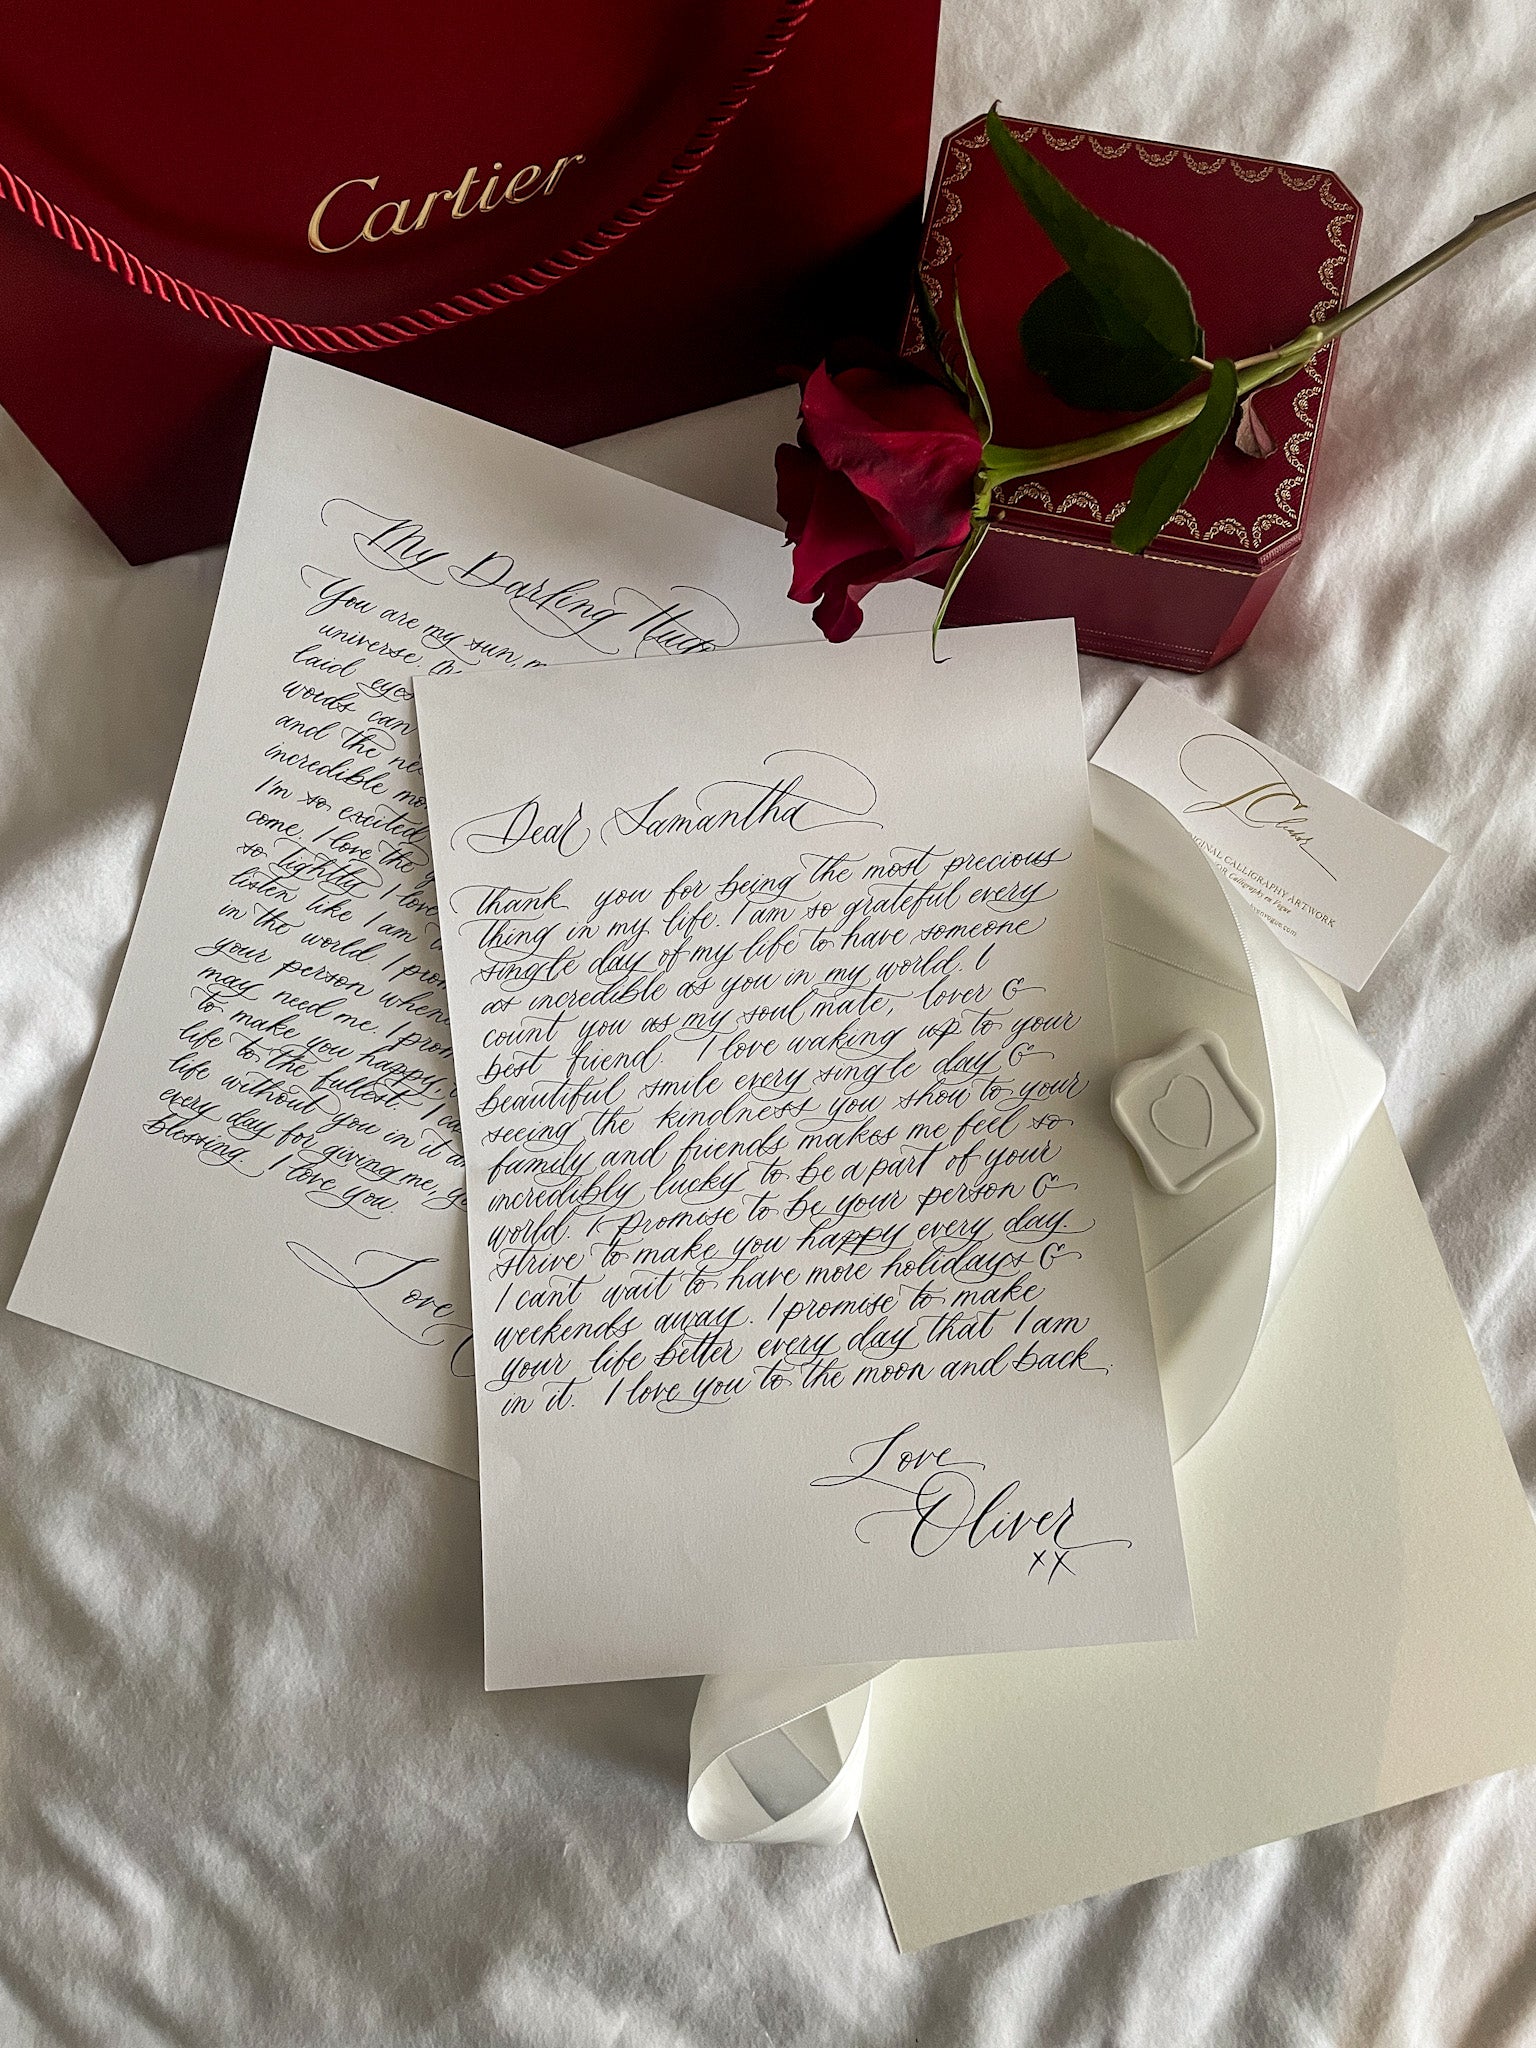 Cartier
My Darling
You are my sun,
universe.
laid eyes
words can
and the
incredible
I'm so excited
come. I love the
so tightly I love
listen like I am
in the world. I
your person
may need me. I
to make you happy,
life to the fullest. I
life without you in it
every day for giving me,
blessing. I love you.
Love
Dear Samantha
Thank you for being the most precious
thing in my life. I am so grateful every
single day of my life to have someone
as incredible as you in my world. I
count you as my soul mate, lover &
best friend. I love waking up to your
beautiful smile every single day &
seeing the kindness you show to your
family and friends makes me feel so
incredibly lucky to be a part of your
world. I promise to be your person &
strive to make you happy every day.
I cant wait to have more holidays &
weekends away. I promise to make
your life better every day that I am
in it. I love you to the moon and back.
Love
Oliver
xx
CALLIGRAPHY ARTWORK
Calligraphy en Vogue